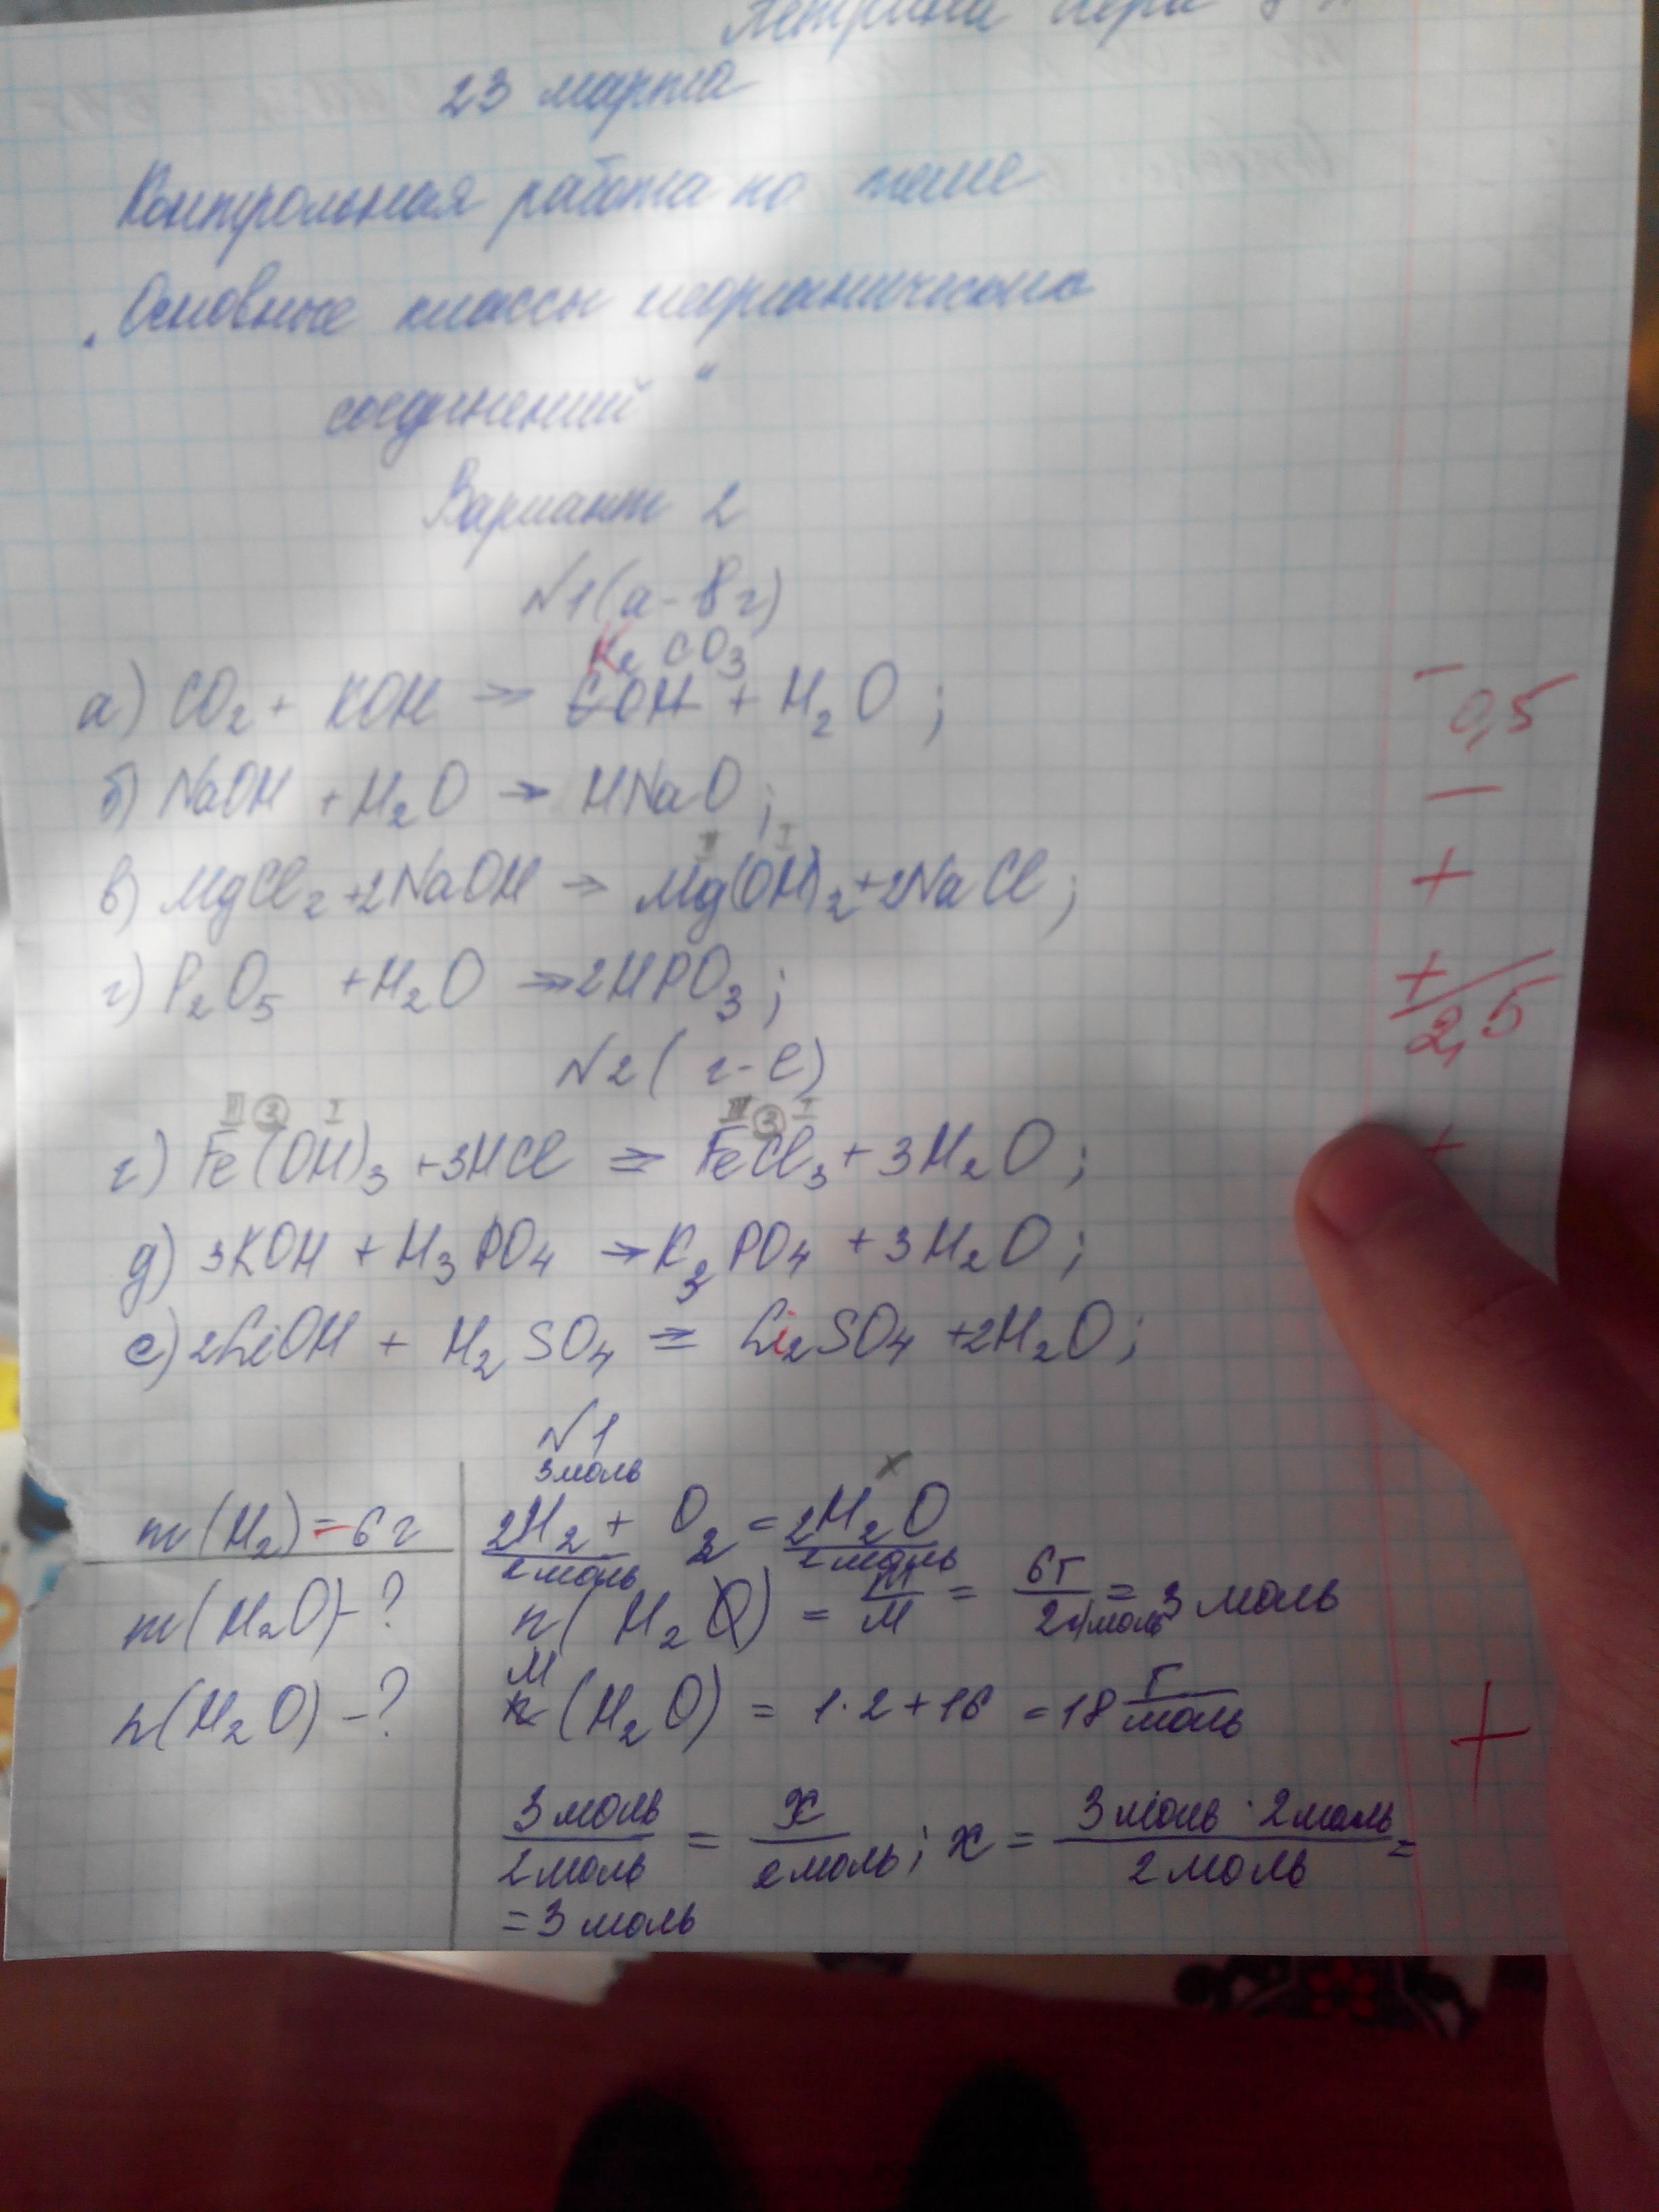 23 марта
Контрольная работа по теме
„Основные классы неорганических
соединений"
Вариант 2
№1 (а-в г)
K2 CO3
а) CO2 + KOH → COH + H2O ;
- 0,5
б) NaOH + H2O → HNaO ;
-
II I
в) MgCl2 + 2NaOH → Mg(OH)2 + 2NaCl ;
+
г) P2O5 + H2O → 2HPO3 ;
+
2,5
№2 ( г-е)
III 3 I III 3 I
г) Fe(OH)3 + 3HCl = FeCl3 + 3H2O ;
+
д) 3KOH + H3PO4 → K3PO4 + 3H2O ;
е) 2LiOH + H2SO4 = Li2SO4 + 2H2O ;
№1
3 моль x
m(H2) = 6 г
2H2 + O2 = 2H2O
2 моль 2 моль
m(H2O) - ?
n(H2O) = m/M = 6г/2г/моль = 3 моль
n(H2O) - ?
M(H2O) = 1·2+16 = 18 г/моль
+
3 моль/2 моль = x/2 моль ; x = 3 моль · 2 моль/2 моль =
= 3 моль